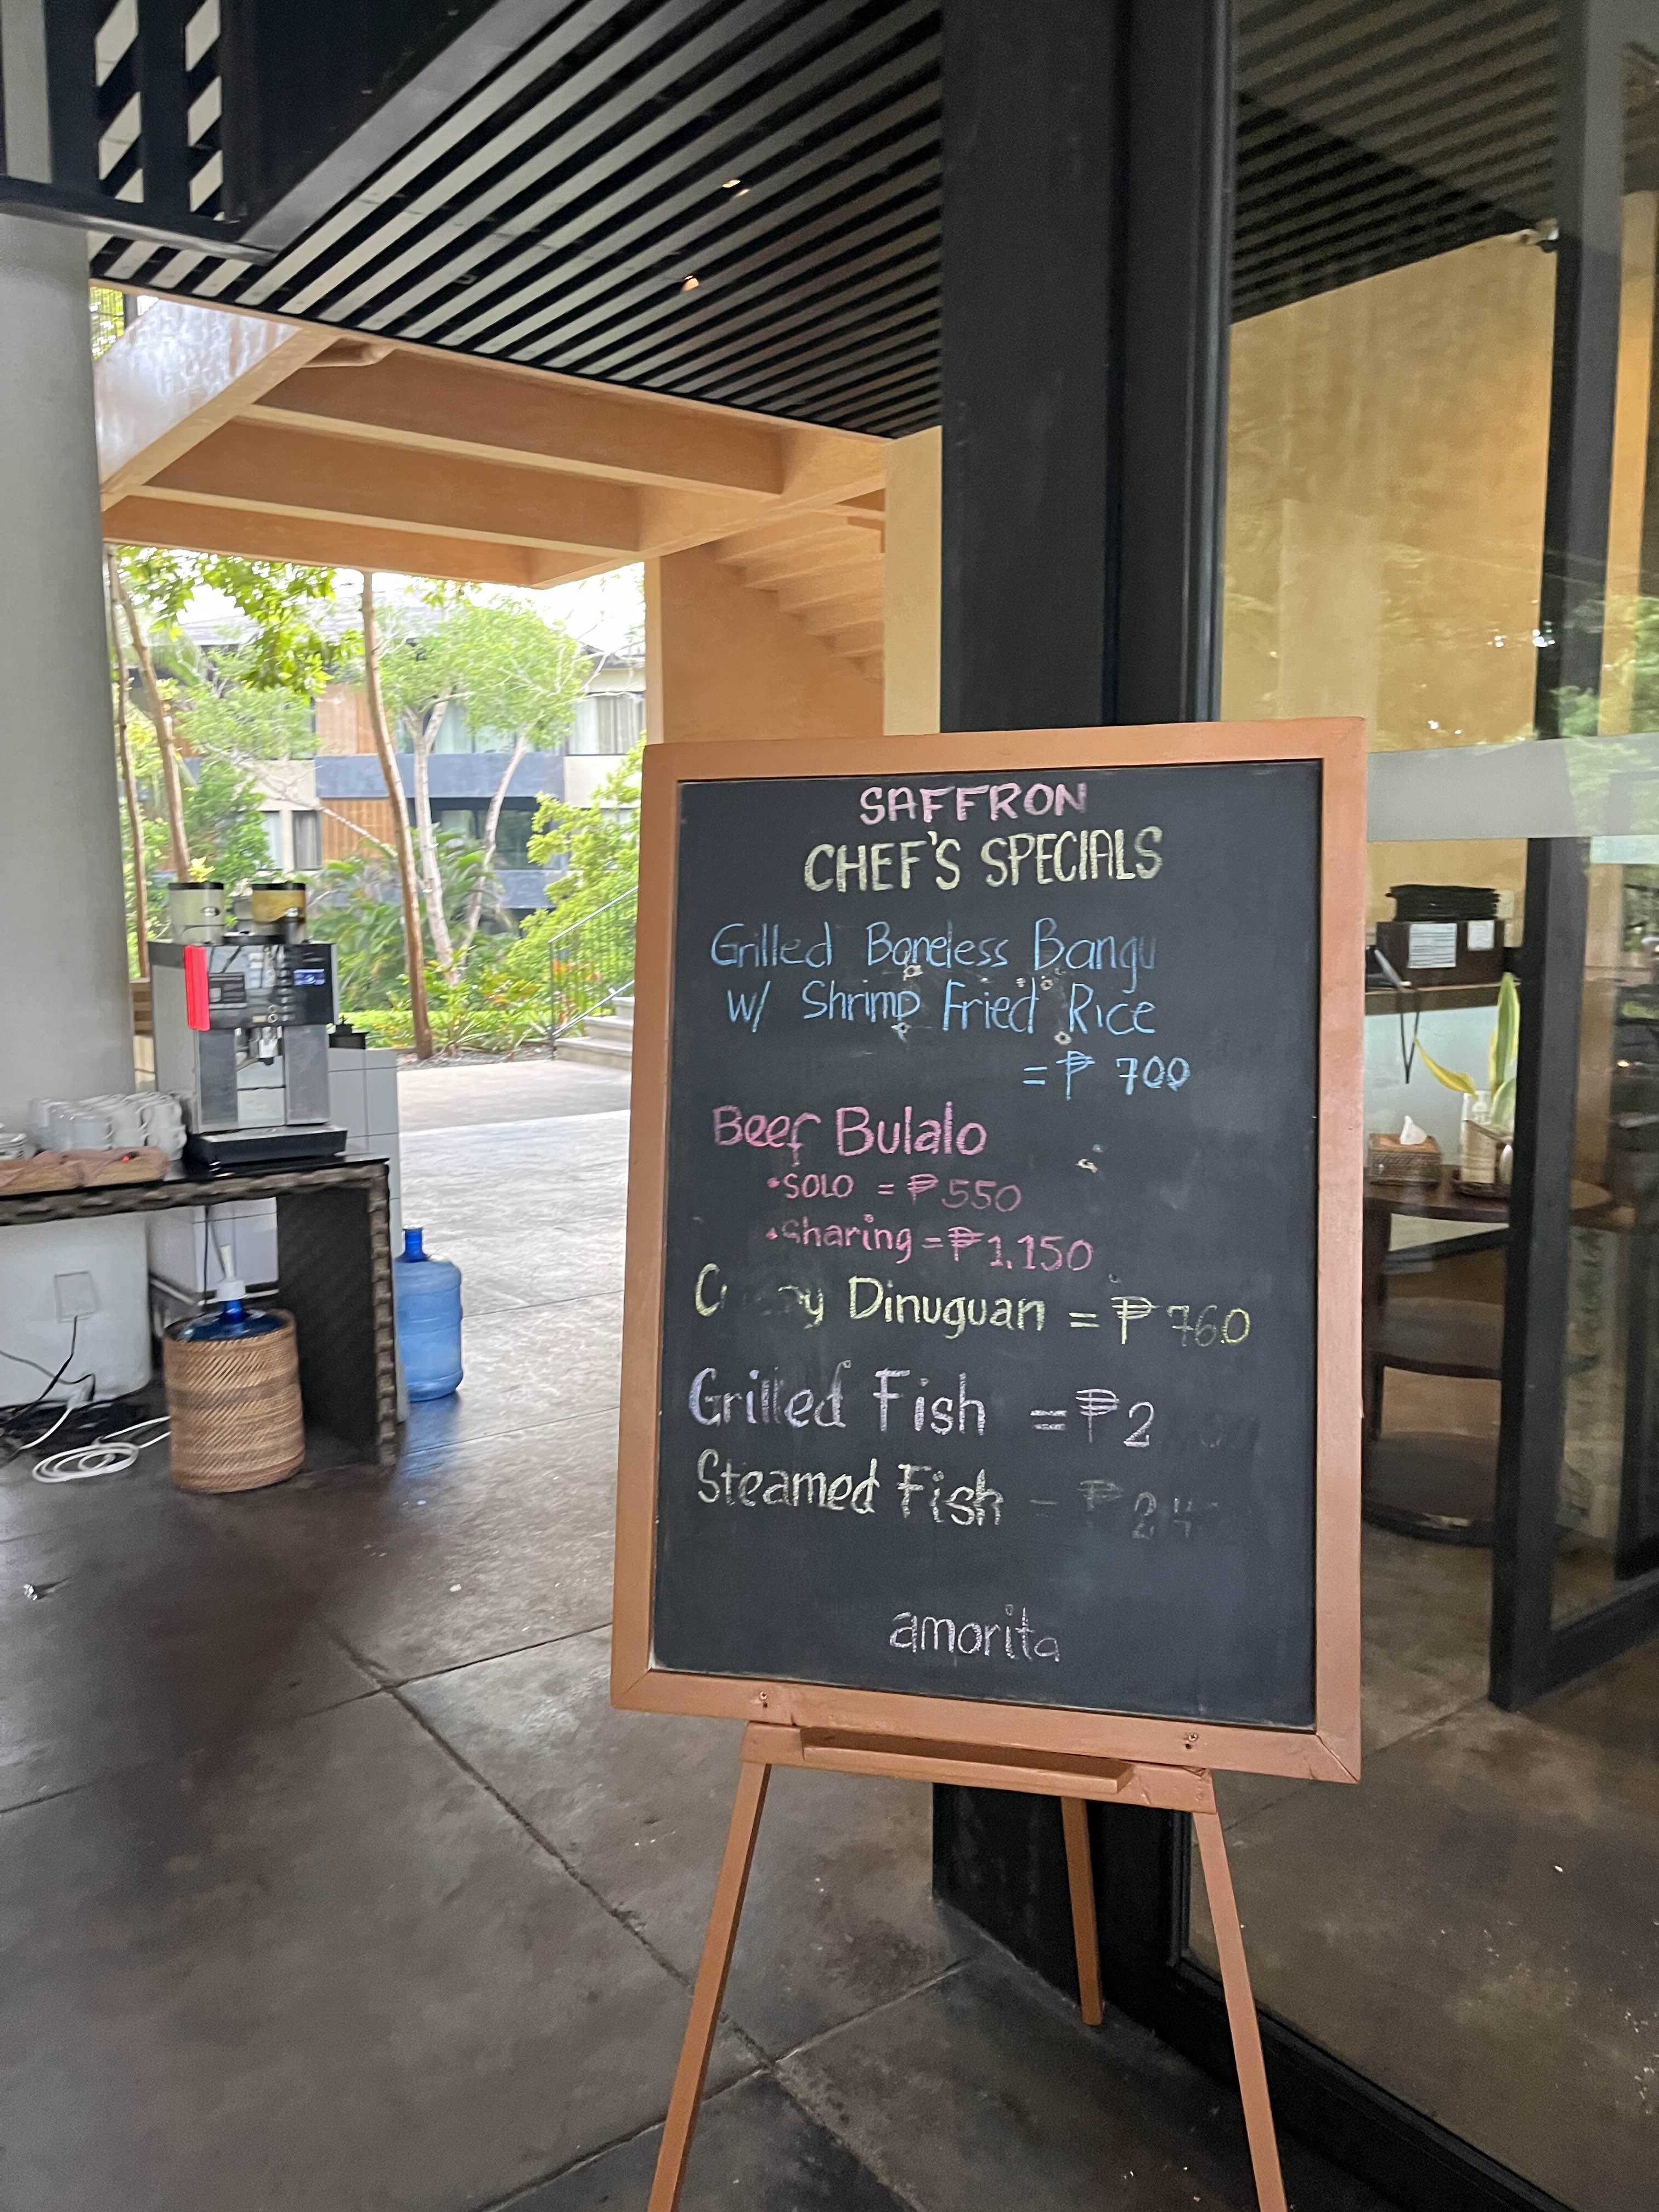 SAFFRON
CHEF'S SPECIALS
Grilled Boneless Bangu
W/ Shrimp Fried Rice
= ₱ 700
Beef Bulalo
•SOLO = ₱ 550
•Sharing = ₱ 1,150
Dinuguan = ₱ 760
Grilled Fish = ₱ 2
Steamed Fish - ₱
amorita